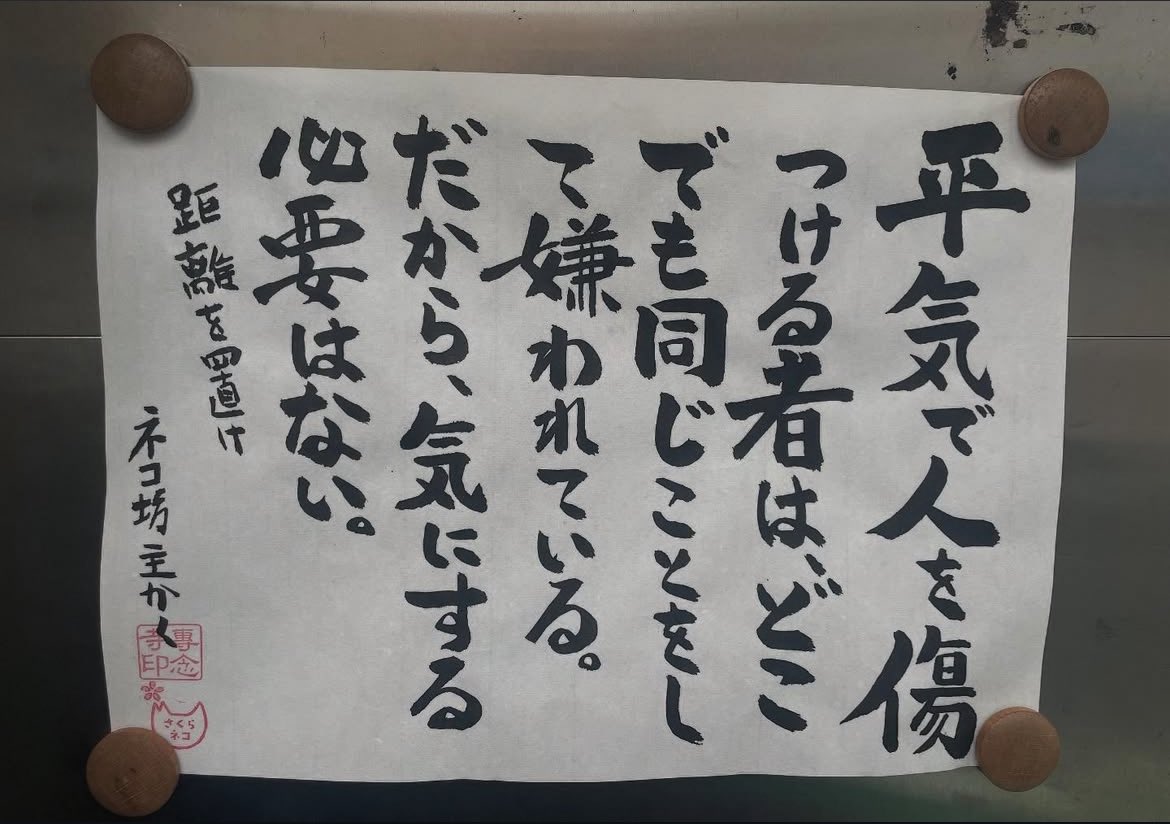 平気で人を傷
つける者は、どこ
でも同じことをし
て嫌われている。
だから、気にする
必要はない。
距離を置け
ネコ坊主かく
專念
寺印
さくら
ネコ